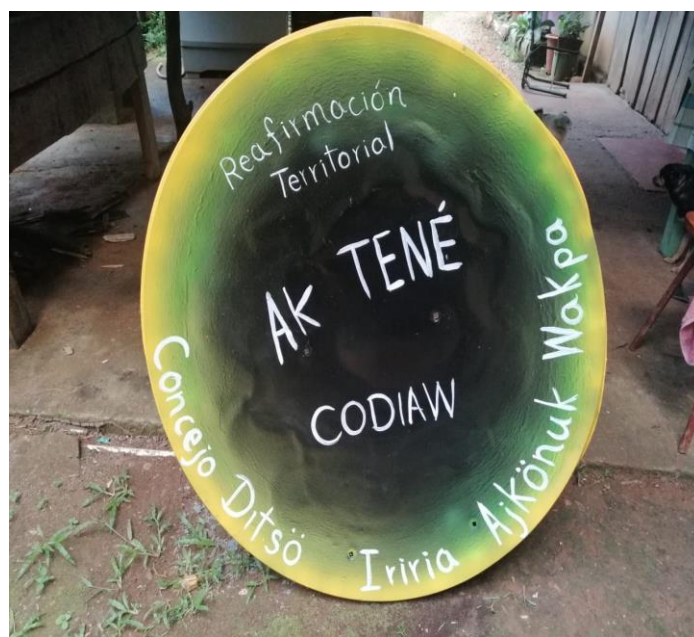 Reafirmación
Territorial
AK TENÉ
CODIAW
Concejo Ditsö Iriria Ajkönuk Wakpa